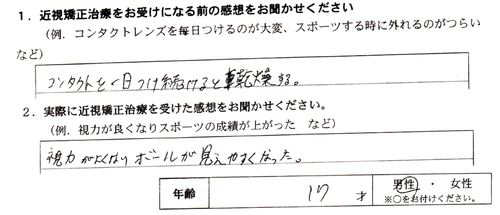 1．近視矯正治療をお受けになる前の感想をお聞かせください
(例．コンタクトレンズを毎日つけるのが大変、スポーツする時に外れるのがつらい
など)
コンタクトを一日つけ続けると乾燥する。
2．実際に近視矯正治療を受けた感想をお聞かせください。
(例．視力が良くなりスポーツの成績が上がった など)
視力がよくなりボールが見えやすくなった。
年齢 17 才 男性 ・ 女性
※○をお付けください。